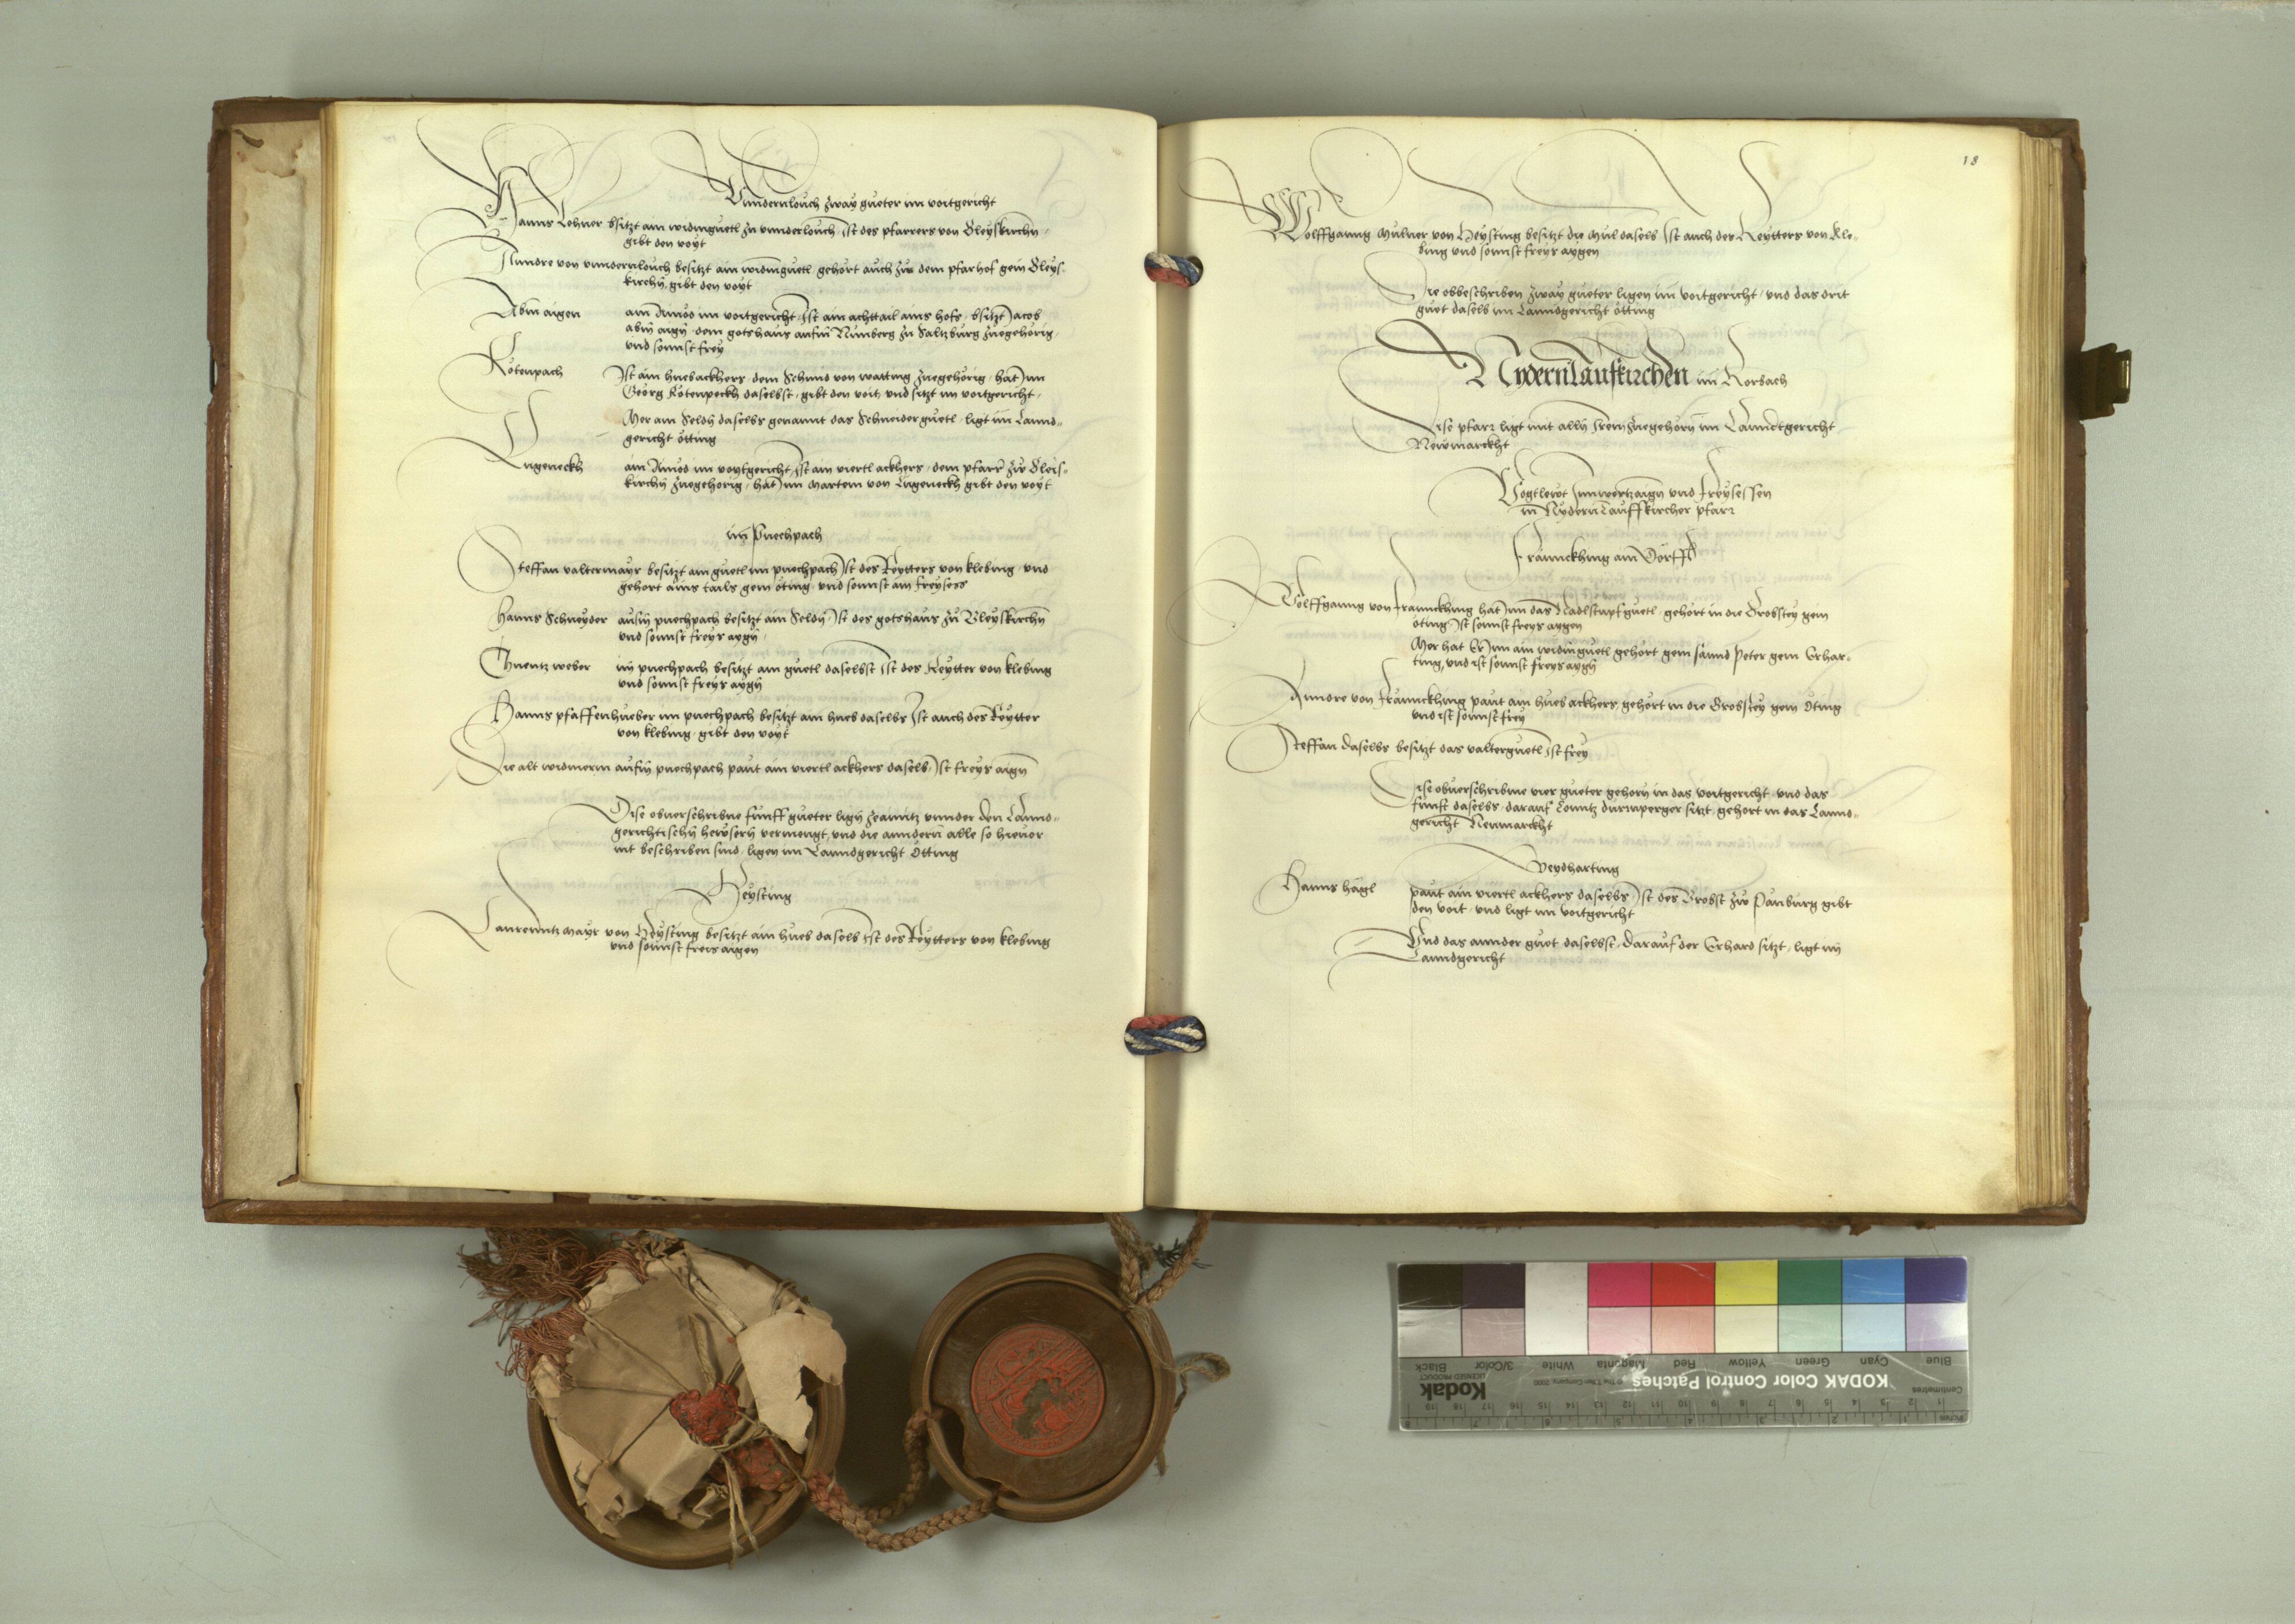 Vnndernlouch zway gueter im voitgericht
Hanns Lehner bsitzt ain widmguetl zu vnnderlouch Ist des pfarrers von Pleyskirchn
gibt den voyt
Anndre von vnndernlouch besitzt ain widmguetl gehort auch zů dem pfarhof gein Pleys-
kirchn, gibt den voyt
Abm aigen am Amos im voitgericht Ist ain achttail ains hofs, bsitzt Jacob
abm aign dem gotshaus aufm Nunberg zu Saltzburg zuegehorig
vnd sonnst frey
Rotenpach Ist ain huebackhers dem Schmid von watting zuegehorig, hat Inn
Georg Rotenpeckh daselbst, gibt den voit, vnd sitzt im voitgericht,
Mer ain Seldn daselbs genannt das Schneider guetl, ligt im Lannd-
gericht otting
Engeneckh am Amos im voytgericht, Ist ain viertl ackhers, dem pfarrer zů Pleis-
kirchn zuegehorig, hat Inn Martein von Engeneckh gibt den voyt
im Puechpach
Steffan valtermayr besitzt ain guetl im puechpach Ist des Reytters von klebing, vnd
gehort ains tails gein oting, vnd sonnst ain freysess
Hanns Schneyder aufm puechpach besitzt ain Seldn, Ist des gotshaus zů Pleyskirchn
vnd sonnst freys aygn,
Chuentz weber im puechpach besitzt ain guetl daselbst Ist des Reytter von klebing
vnd sonnst freys aygn
Hanns pfaffenhueber im puechpach besitzt ain hueb daselbs Ist auch des Reytter
von klebing, gibt den voyt
Die alt widmerin aufm puechpach paut ain viertl ackhers daselb, Ist freys aign
Dise obuerschribne funff gueter lign zeainitz vnnder den Lannd-
gerichtischn hewsern vermengt, vnd die anndern alle so hieuor
nit beschriben sind, ligen im Lanndgericht Otting
Heysting
Laurenntz mayr von Heysting besitzt ain hueb daselb ist des Reytters von klebing
vnd sonnst freis aigen
18
Wolffganng Mulner von Heysting besitzt die Mul daselb Ist auch der Reytters von Kle-
bing vnd sonnst freys aygen
Die obbeschriben zway gueter ligen im voitgericht, vnd das drit
guet daselb im Lanndgericht otting
Nydernlaufkirchen im Rorbach
Dise pfarr ligt mit alln Iren zuegehorn im Lanndtgericht
Newmarckht
Vogtlewt Innwertzaign vnd freysessen
in Nydernlauffkircher pfarr
Frannckhing am Dorff
Wolffganng von frannckhing hat Inn das Nadlstapfguetl, gehort in die Brobstey gein
oting Ist sonnst freys aygen
Mer hat Er Inn ain widmguetl gehort gein sannd Peter gein Erhar-
ting, vnd ist sonnst freys aygn
Anndre von Frannckhing paut ain hueb ackhers, gehort in die Brobstey gein Oting
vnd ist sonnst frey
Steffan daselbs besitzt das valterguetl Ist frey
Dise obuerschribne vier gueter gehorn in das voitgericht, vnd das
funft daselbs, darauf Contz durnperger sitzt, gehort in das Lannd-
gericht Neumarckht
Weydharting
Hanns hagl paut ain viertl ackhers daselbs, Ist des Brobst zů Panburg gibt
den voit, vnd ligt im voitgericht
Vnd das annder guet daselbst, darauf der Erhard sitzt, ligt im
Lanndgericht
Blue Cyan Green Yellow Red Magenta White 3/Color Black
KODAK Color Control Patches
Kodak
LICENSED PRODUCT
Centimetres
Inches